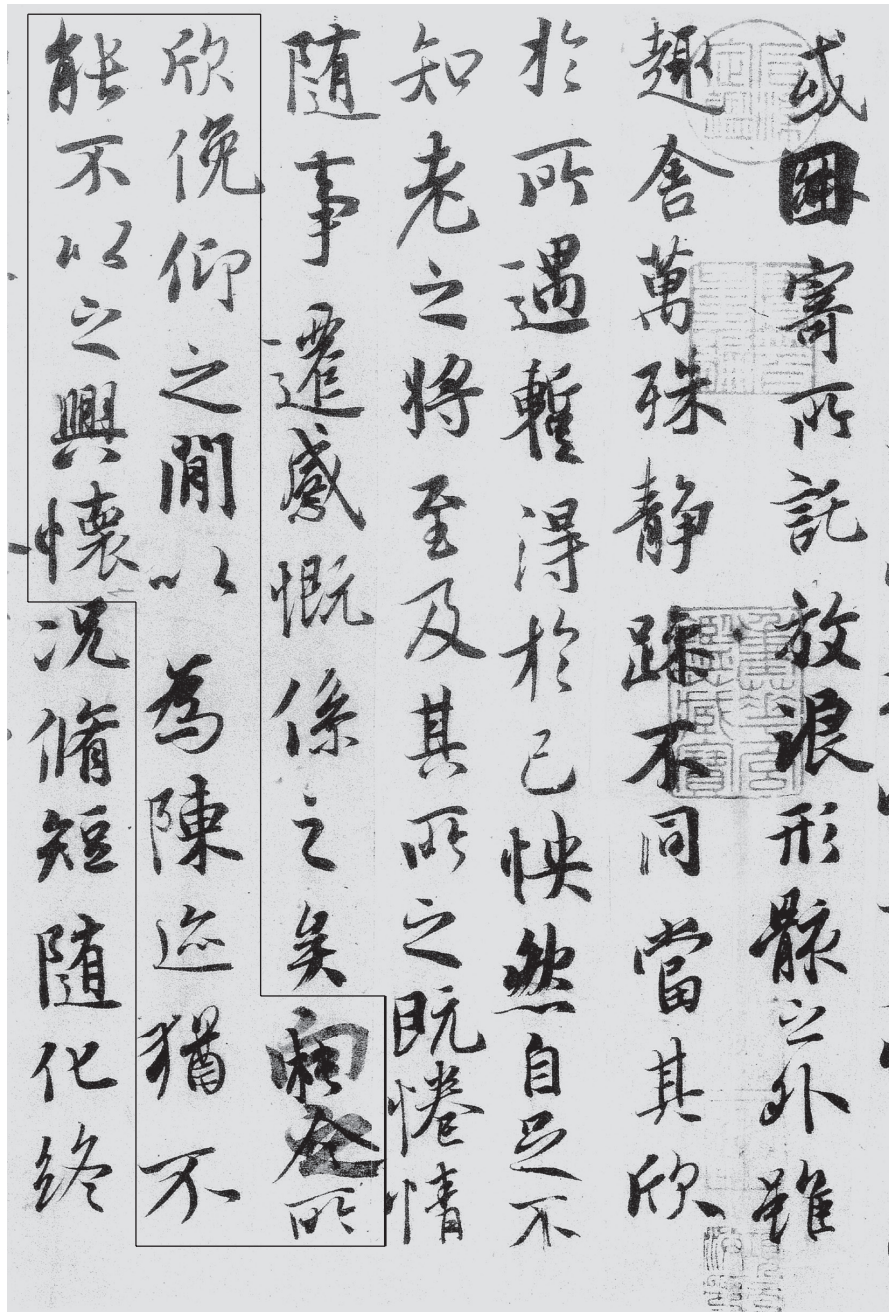 或因寄所託放浪形骸之外雖
趣舍萬殊静躁不同當其欣
於所遇暫得於己怏然自足不
知老之將至及其所之既惓情
随事遷感慨係之矣向之所
欣俛仰之閒以為陳迹猶不
能不以之興懷況脩短随化終